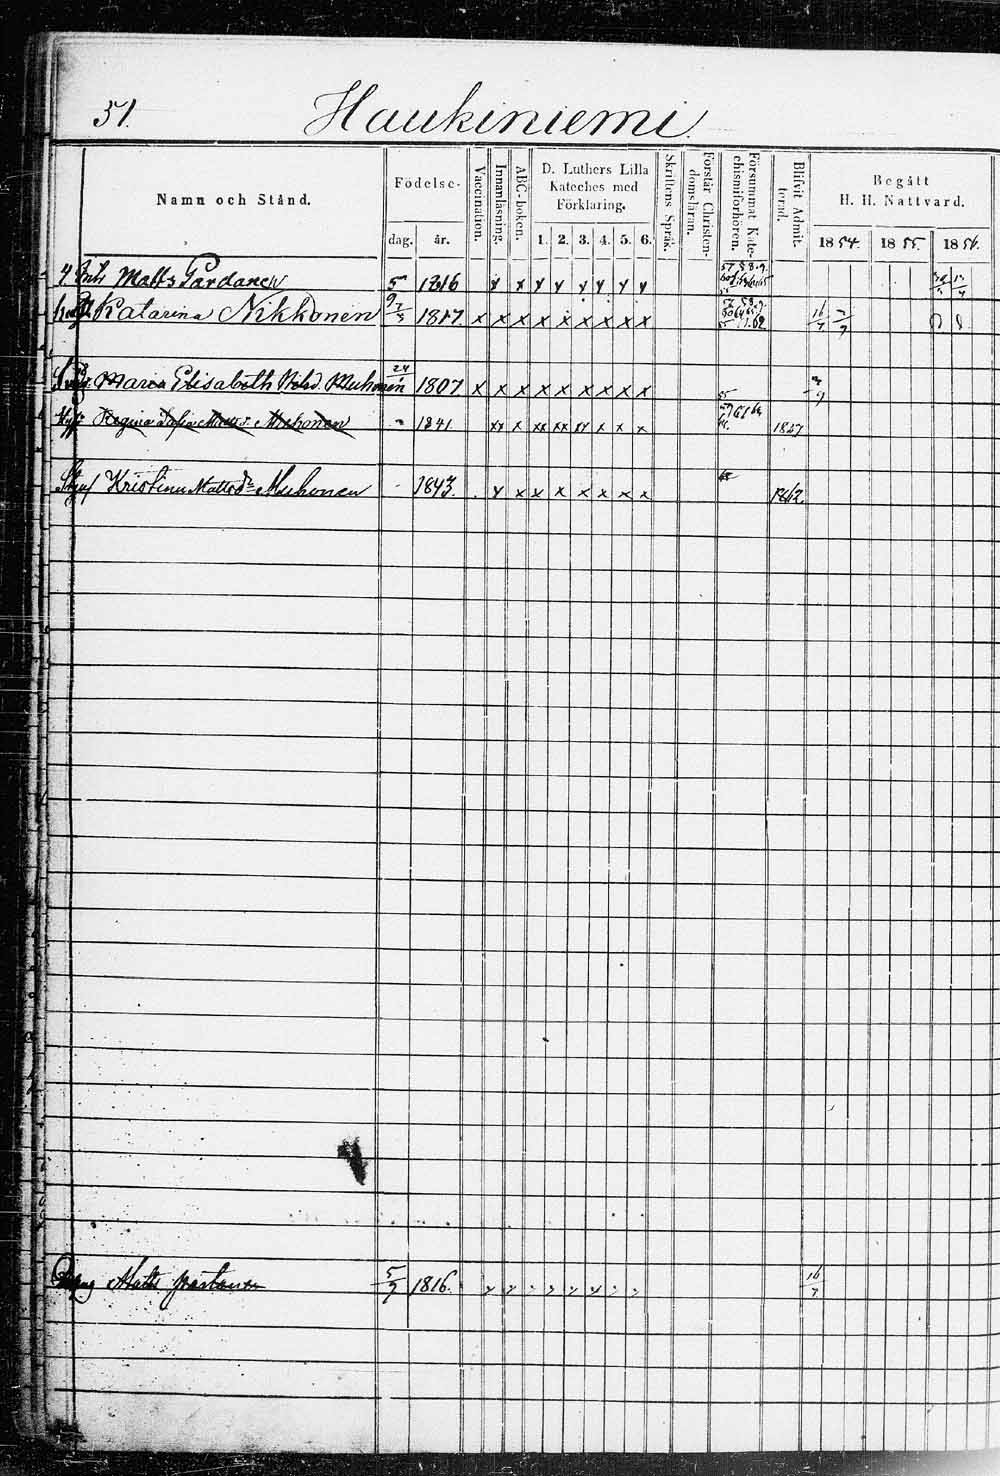 51.
Haukiniemi
Namn och Stånd.
Födelse-
dag. år.
Vaccination.
Innanläsning.
ABC-boken.
D. Luthers Lilla
Kateches med
Förklaring.
1. 2. 3. 4. 5. 6.
Skriftens Språk.
Förstår Christen-
domsläran.
Försummat Kate-
chismiförhören.
Blifvit Admit-
terad.
Begått
H. H. Nattvard.
1854. 1855. 1856.
Matts Pardanen 5 1816 x x x x x x x x
Katarina Nikkonen 1817 x x x x x x x x x 16/7
Maria Elisabeth Muhonen 24 1807 x x x x x x x x x 55
Regina Sofia Matts Muhonen 1841 xx x xx xx xx x x x
Kristina Mattsdr Muhonen 1843. x x x x x x x x 1862.
Matts 5/7 1816. 16/7